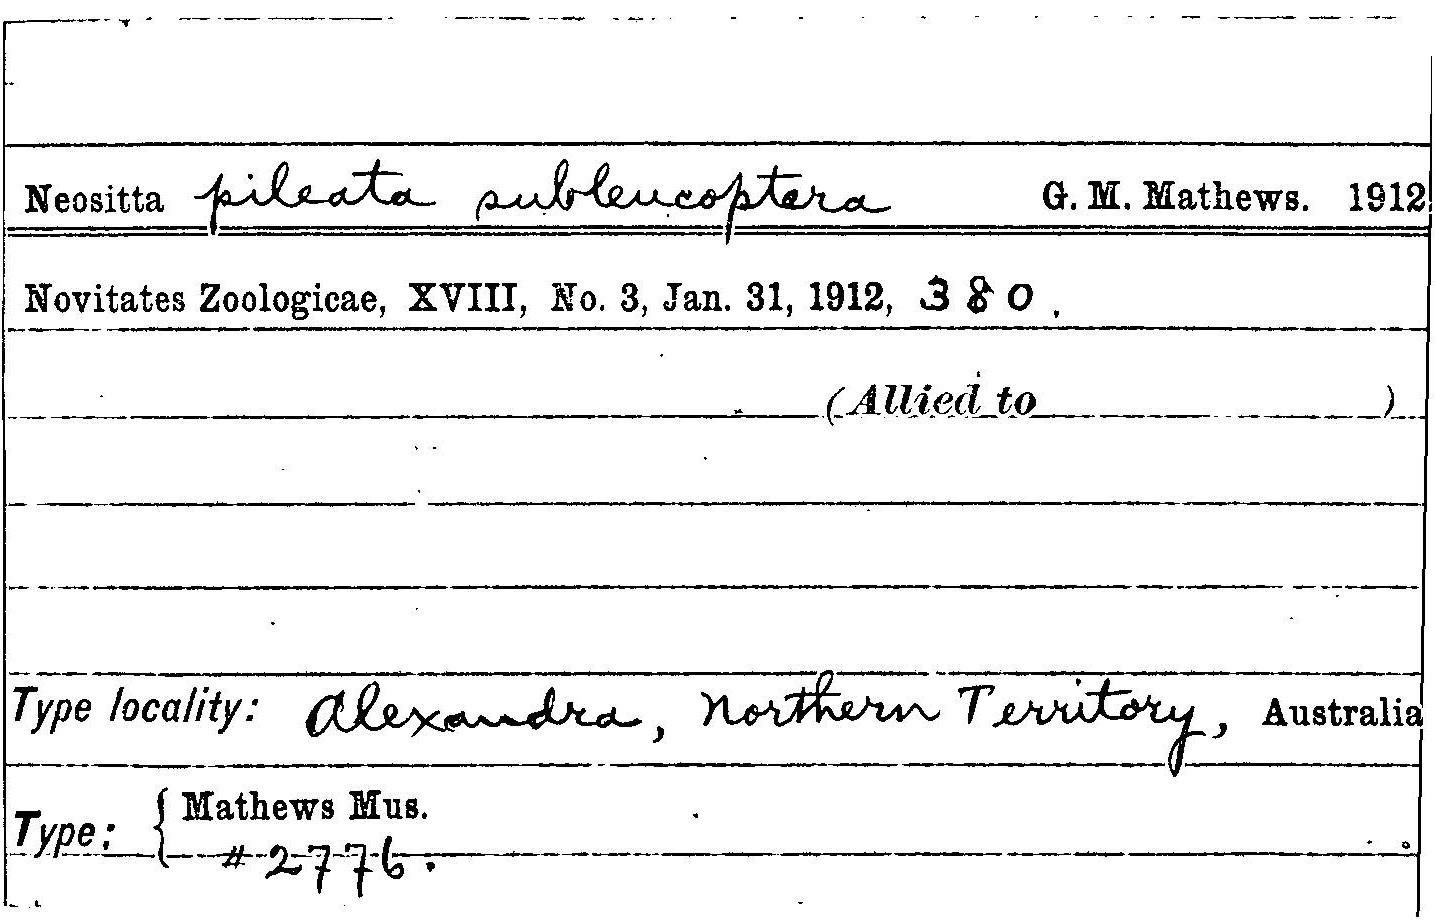 Neositta pileata subleucoptera G. M. Mathews. 1912
Novitates Zoologicae, XVIII, No. 3, Jan. 31, 1912, 380.
(Allied to )
Type locality: Alexandra, Northern Territory, Australia
Type: { Mathews Mus.
# 2776.